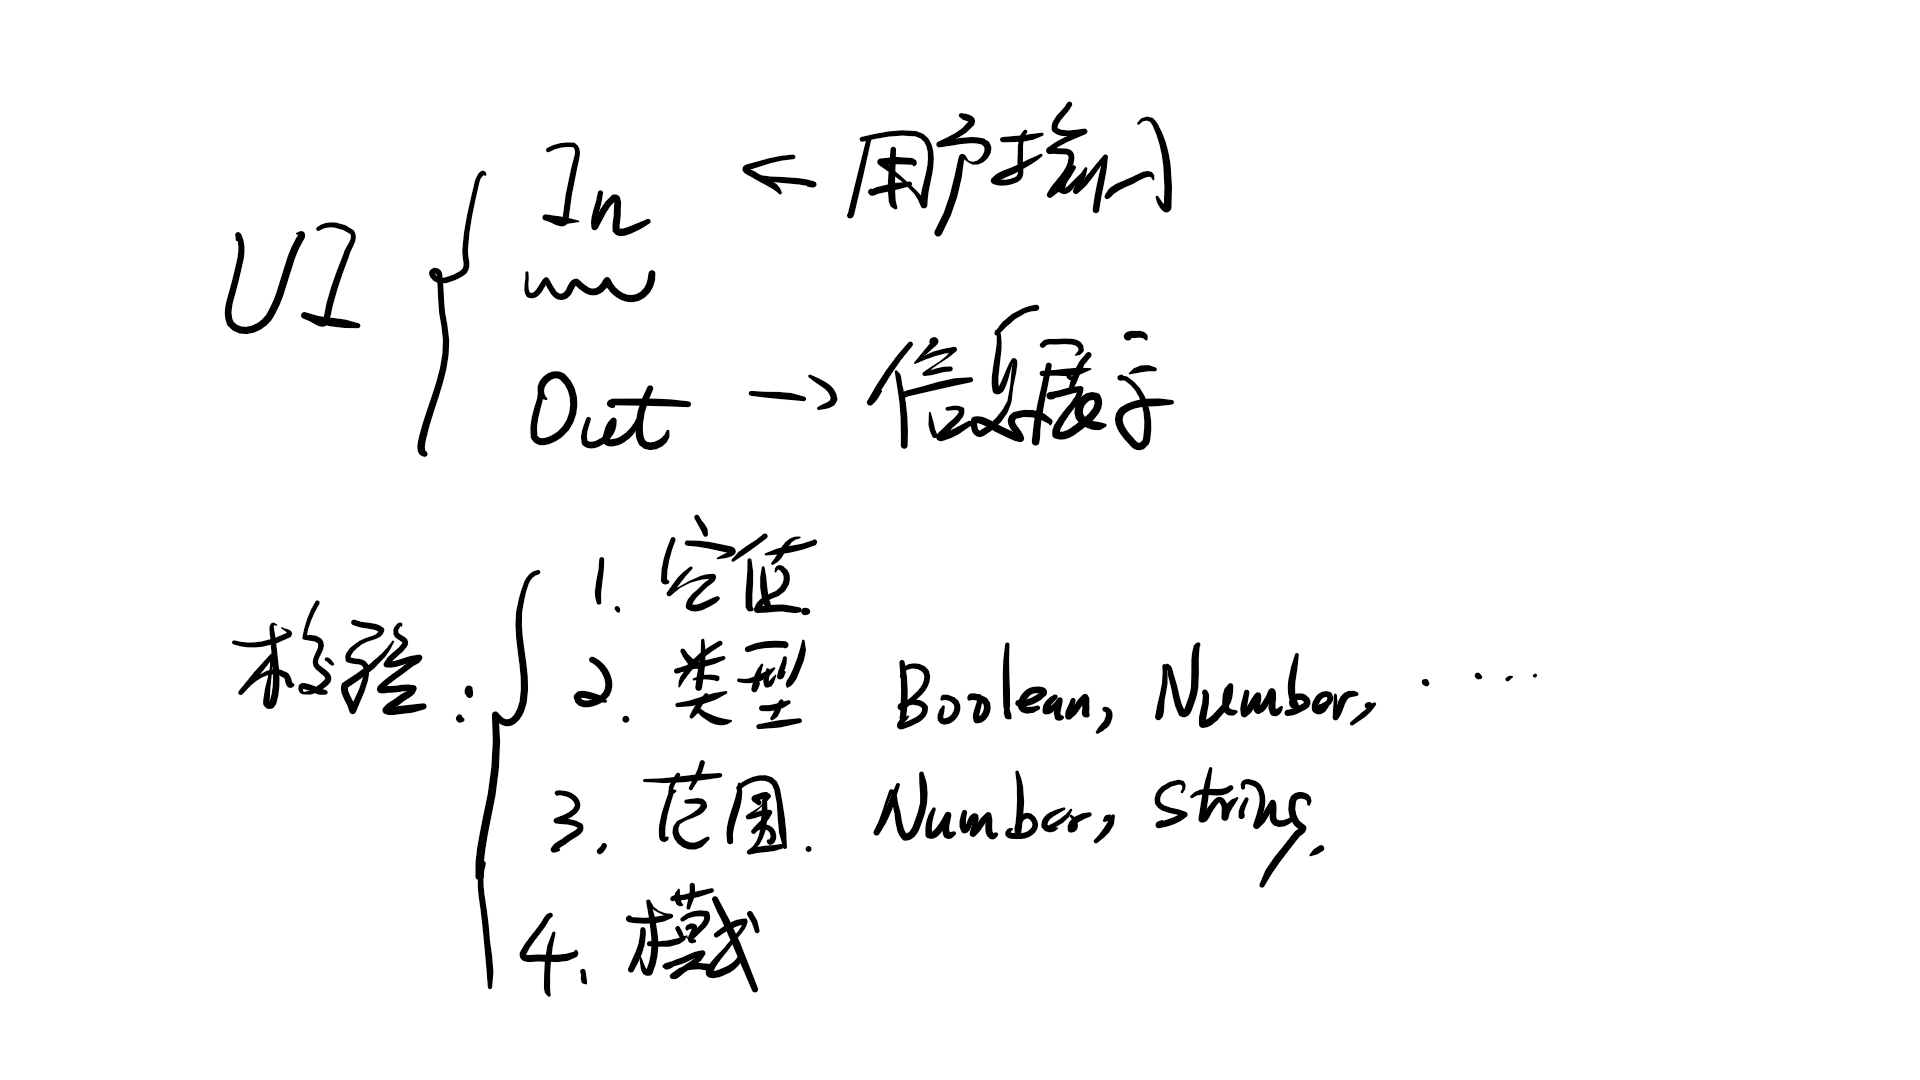 UI
In ← 用户输入
Out → 信息展示
校验:
1. 空值.
2. 类型 Boolean, Number, ······
3. 范围. Number, String.
4. 模式